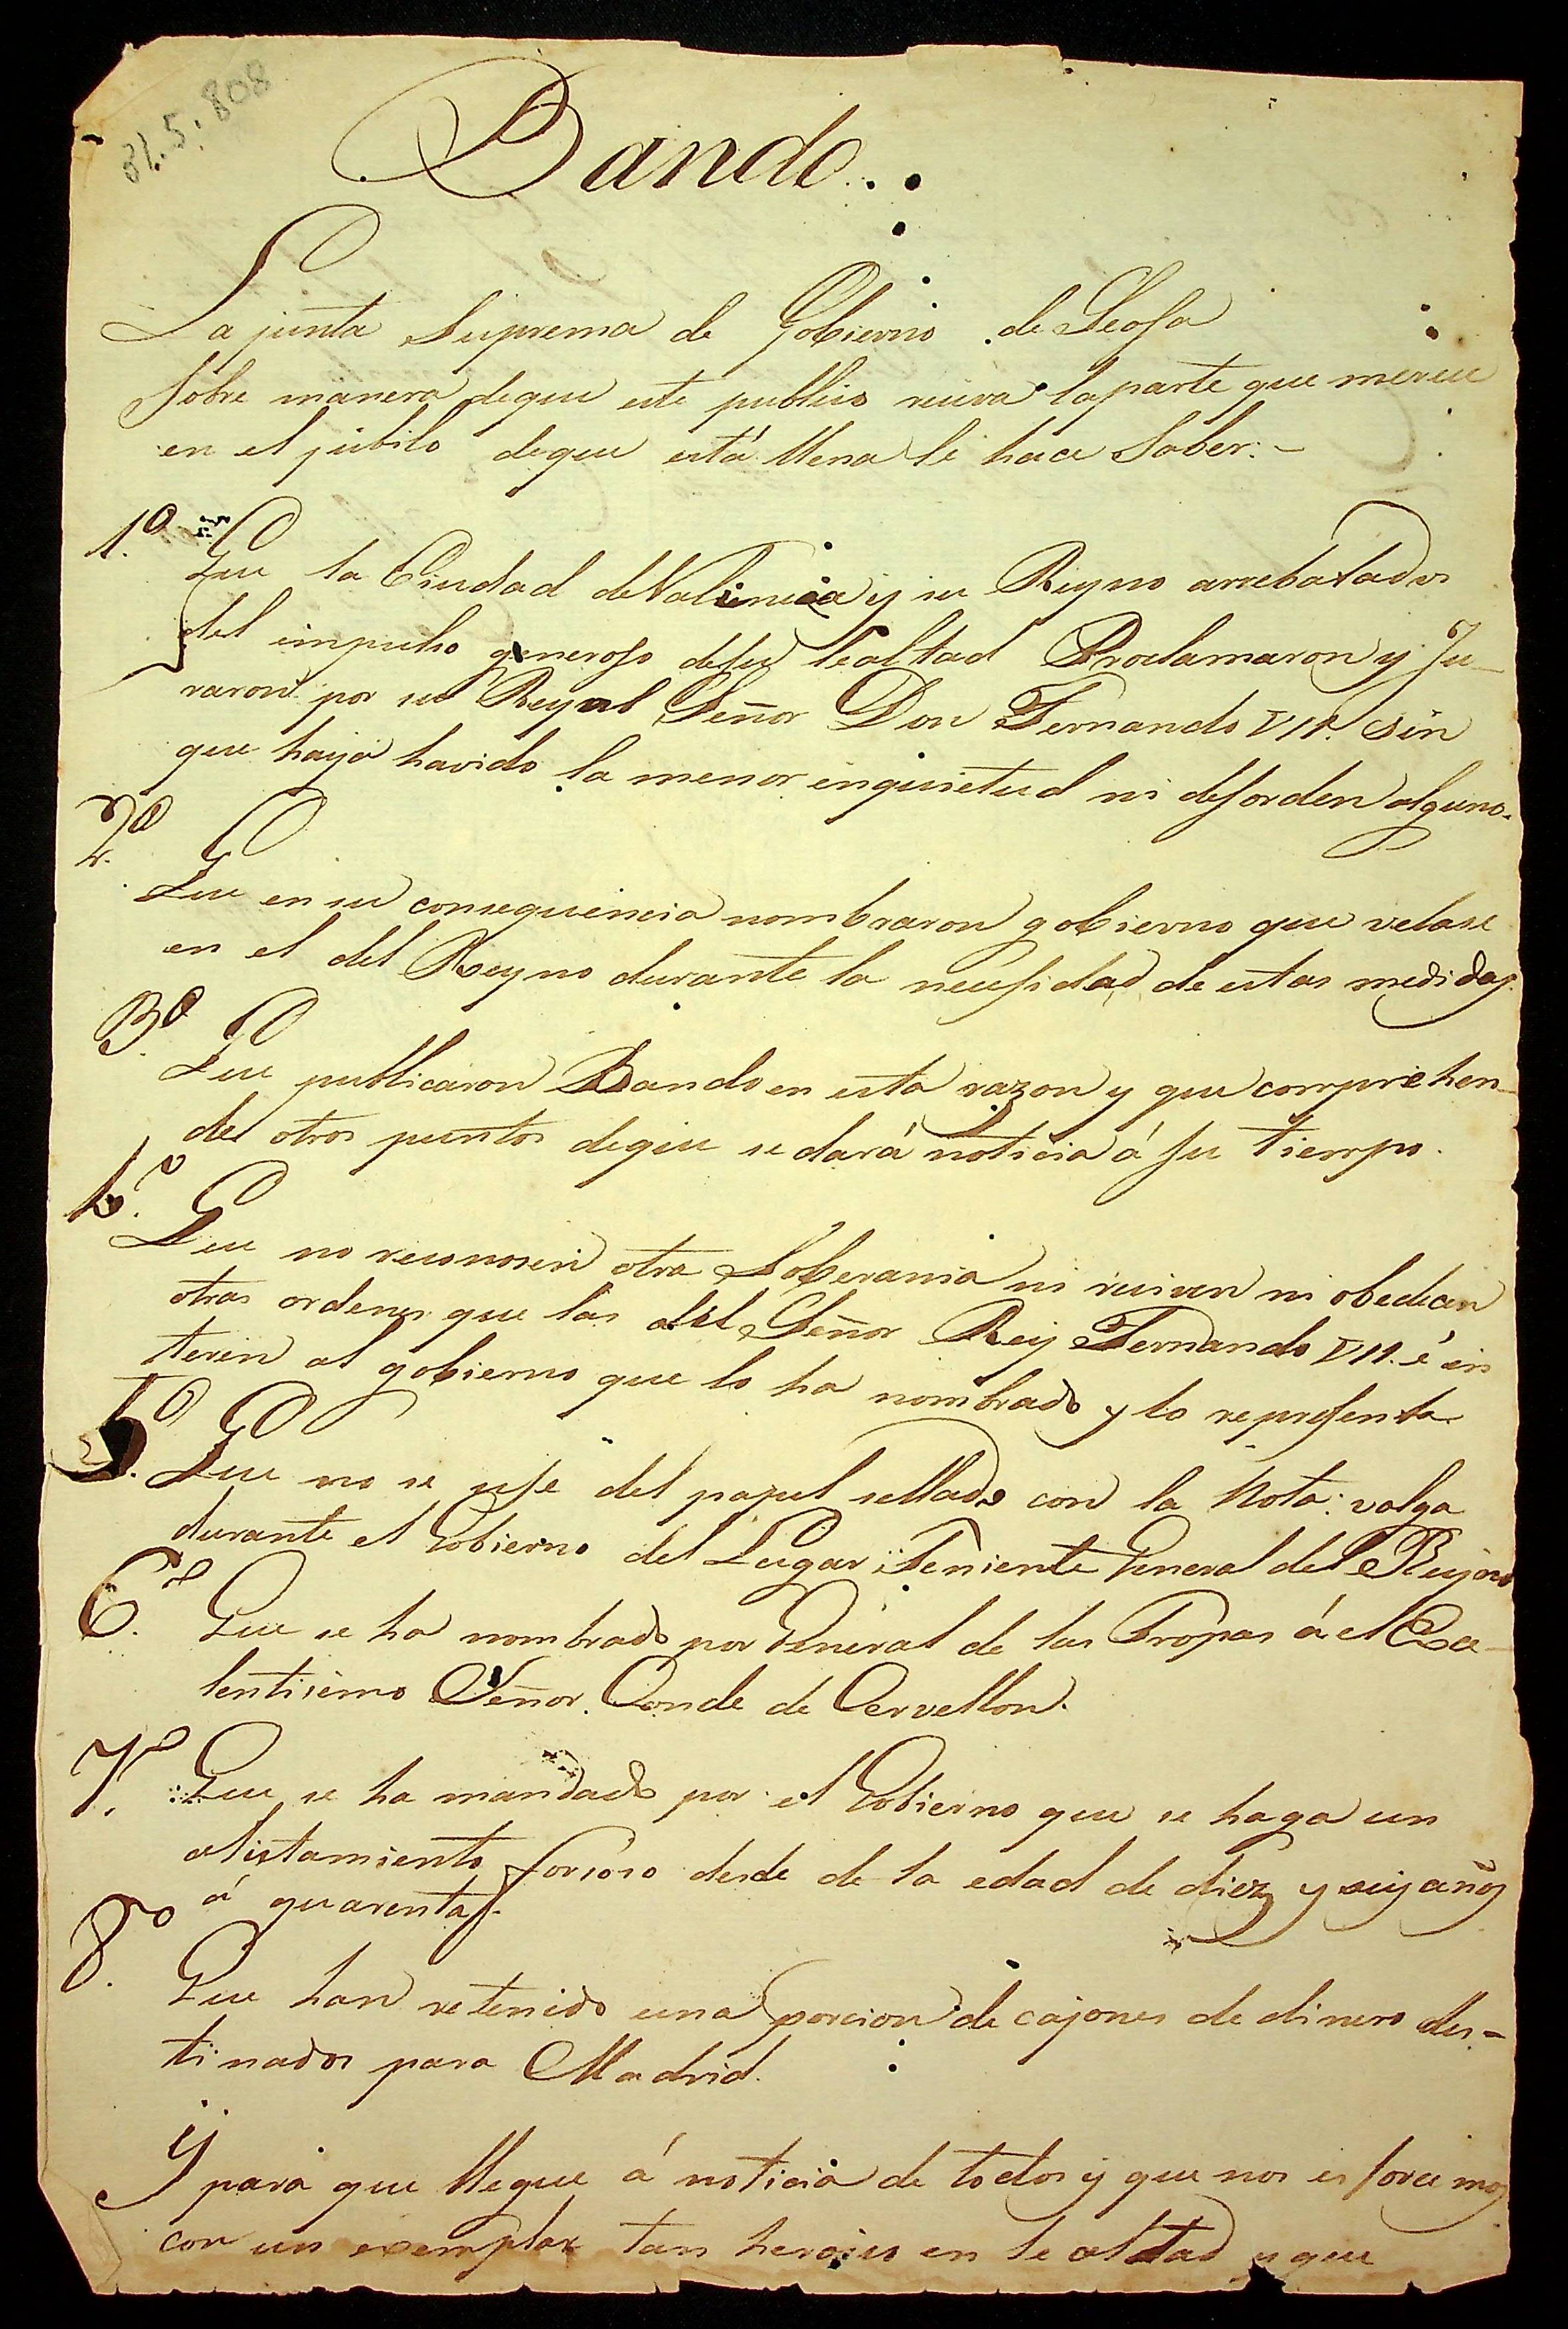 31.5.808
Bando..
La junta Suprema de Gobierno de
Sobre manera deque este publico reciva la parte que merece
en el jubilo deque está llena le hace Saber:-
1.º Que la Ciudad de Valiencia y su Reyno arrebatados
del impulso generoso desu lealtad Proclamaron y Ju-
raron por su Rey al Señor Don Fernando VII. sin
que haya havido la menor inquietud ni desorden alguno.
2.º Que en su consequencia nombraron gobierno que velase
en el del Reyno durante la necesidad de estas medidas.
3.º Que publicaron Bando en esta razon y que comprehen-
de otros puntos deque se dará noticia á su tiempo.
4.º Que no reconosen otra Soberania ni reciven ni obedecen
otras ordenes que las del Señor Rey Fernando VII. é in
terin al gobierno que lo ha nombrado y lo representa
5.º Que no se use del papel sellado con la Nota: valga
durante el Gobierno del Lugar Teniente General del Reyno
6.º Que se ha nombrado por General de las Tropas á el Exce-
lentisimo Señor. Conde de Cervellon.
7.º Que se ha mandado por el Gobierno que se haga un
alistamiento forsoso desde de la edad de diez y seis años
á quarenta.
8.º Que han retenido una porcion de cajones de dinero des-
tinados para Madrid.
Y para que llegue á noticia de todos y que nos esforcemos
con un exemplar tan heroico en lealtad y que